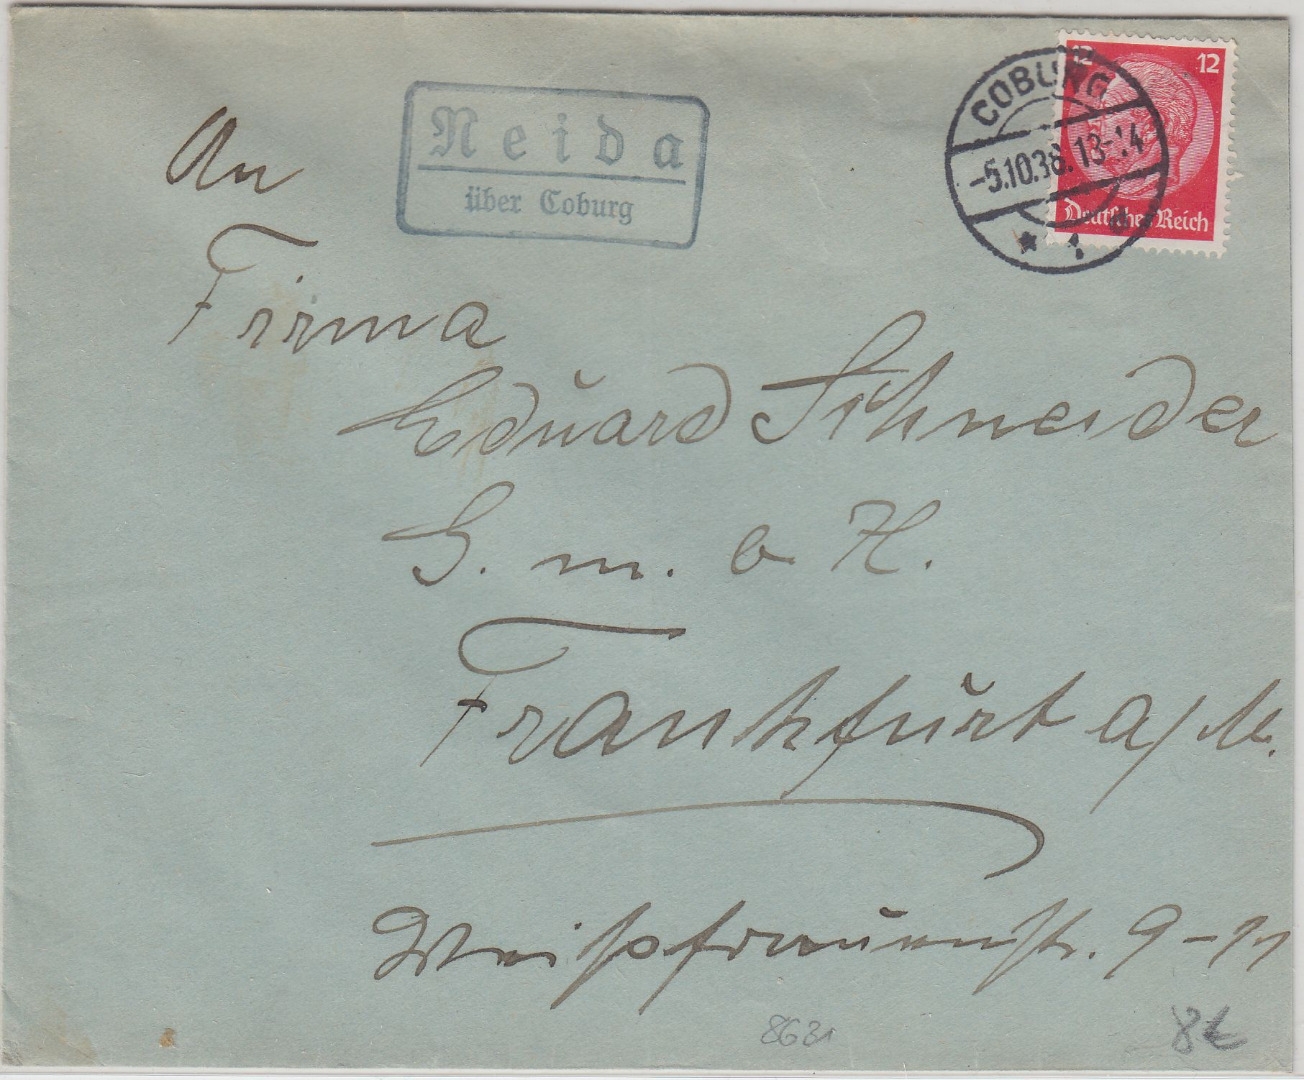 Neida
über Coburg
COBURG
-5.10.38.13-14
* 1
12
12
Deutsches Reich
An
Firma
Eduard Schneider
G. m. b H.
Frankfurt a/M.
Weißfrauenstr. 9-11
8631
8€